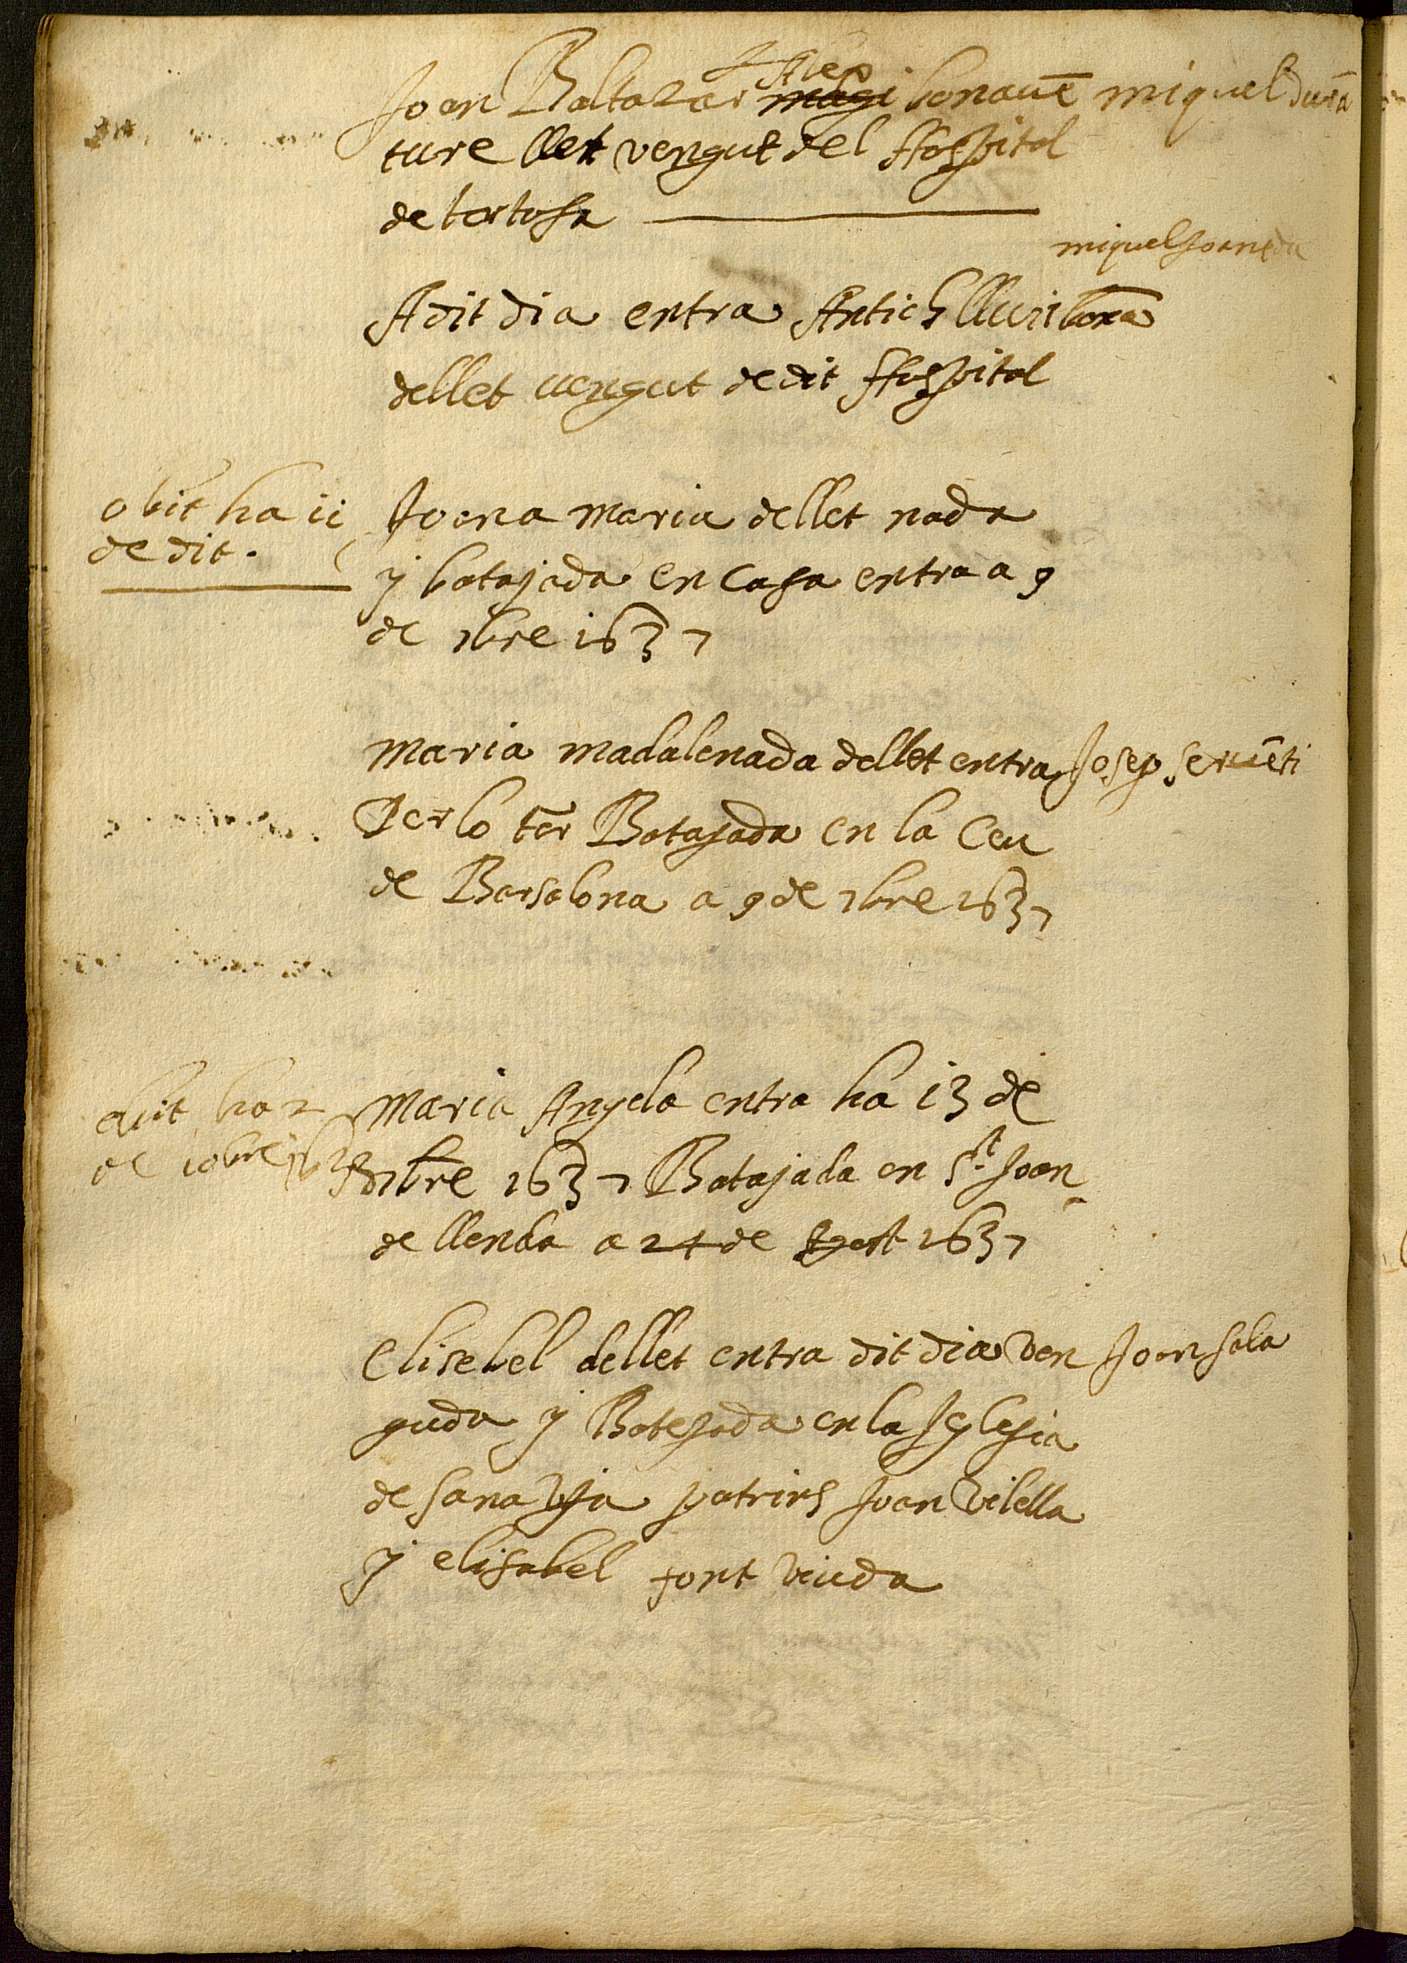 Joan Baltazar Josep magi bonaue miquel dura
ture llet vengut del Hospital
de tortosa
miquel Joaneda
A dit dia entra Antich lluri bona
dellet uengut de dit Hospital
obit ha ii
de dit.
Joana maria dellet nada
y batajada en Casa entra a 9
de 7bre 1637
maria madalenada dellet entra Josep serueti
Per lo ter Batajada en la Ceu
de Barsalona a 9 de 7bre 1637
obit ha 2
de 10bre
maria Angela entra ha 13 de
7bre 1637 Batajada en St. Joan
de llenda a 24 de Agost 1637
Elisebel dellet entra dit dia ven Joan sala
guda y Batejada en la Iglesia
de sanavja patrins Joan Vilella
y elisabel font viuda